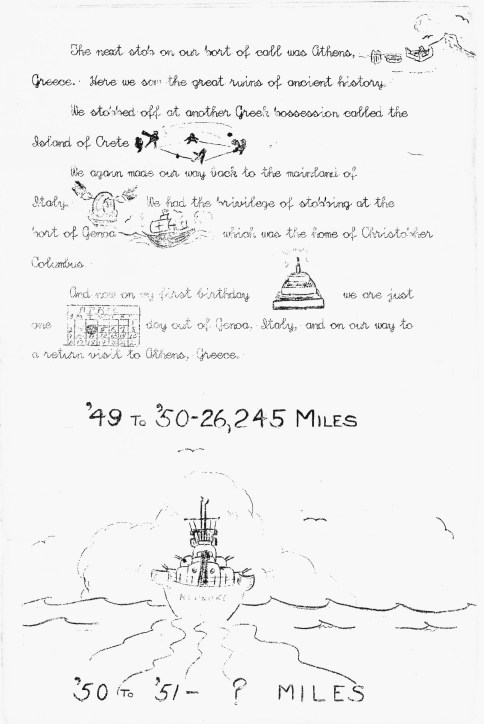 The next stop on our port of call was Athens,
Greece. Here we saw the great ruins of ancient history.
We stopped off at another Greek possession called the
Island of Crete
We again made our way back to the mainland of
Italy. We had the privilege of stopping at the
port of Genoa which was the home of Christopher
Columbus.
And now on my first birthday we are just
one day out of Genoa, Italy, and on our way to
a return visit to Athens, Greece.
'49 To '50-26,245 MILES
'50 To '51- ? MILES